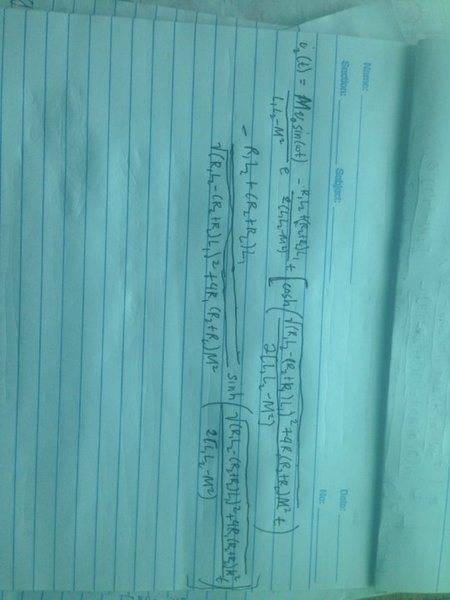 Name:
Section: Subject: Date:
No:
i₂(t) = Mv₀sin(ωt)/(L₁L₂-M²) e^(-(R₁L₂+(R₂+R_L)L₁)/(2(L₁L₂-M²)) t) [cosh(√((R₁L₂-(R₂+R_L)L₁)²+4R₁(R₂+R_L)M²) t/(2(L₁L₂-M²)))
- (R₁L₂+(R₂+R_L)L₁)/√((R₁L₂-(R₂+R_L)L₁)²+4R₁(R₂+R_L)M²) sinh(√((R₁L₂-(R₂+R_L)L₁)²+4R₁(R₂+R_L)M²) t/(2(L₁L₂-M²)))]